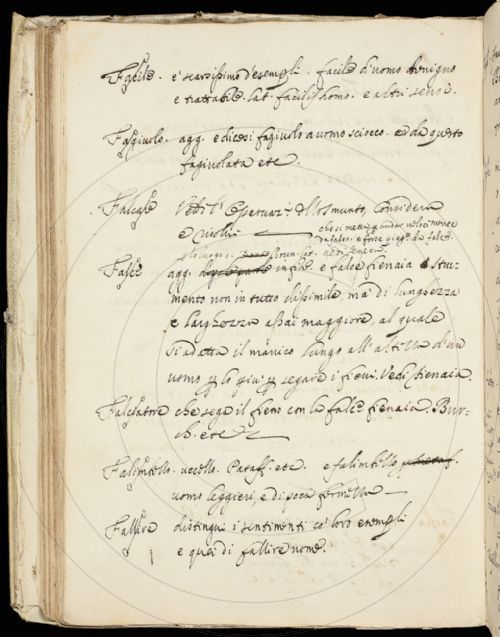 Facile. e' scarsissimo d'esempli. facile d'uomo benigno
e trattabile. lat. facilis homo. e altri sensi.
Fagiuolo. agg. e dicesi fagiuolo a uomo sciocco. e da questo
fagiuolata etc.
Falcare Vedi l'
e
che si mette a andar veloci
agg. in fine. e falce fienaia e stru-
mento non in tutto dissimile, ma di lunghezza
e larghezza assai maggiore, al quale
si adatta il manico lungo all'altezza d'un
uomo p lo piu' p segare i fieni. Vedi fienaia.
Falciatore che sega il fieno con la falce fienaia. Bur-
ch. etc
Falimbello. uccello. Pataff. etc. e falimbello
uomo leggieri, e di poca fermezza
Fallire distingui i sentimenti co' loro esempli
e quei di fallire nome.